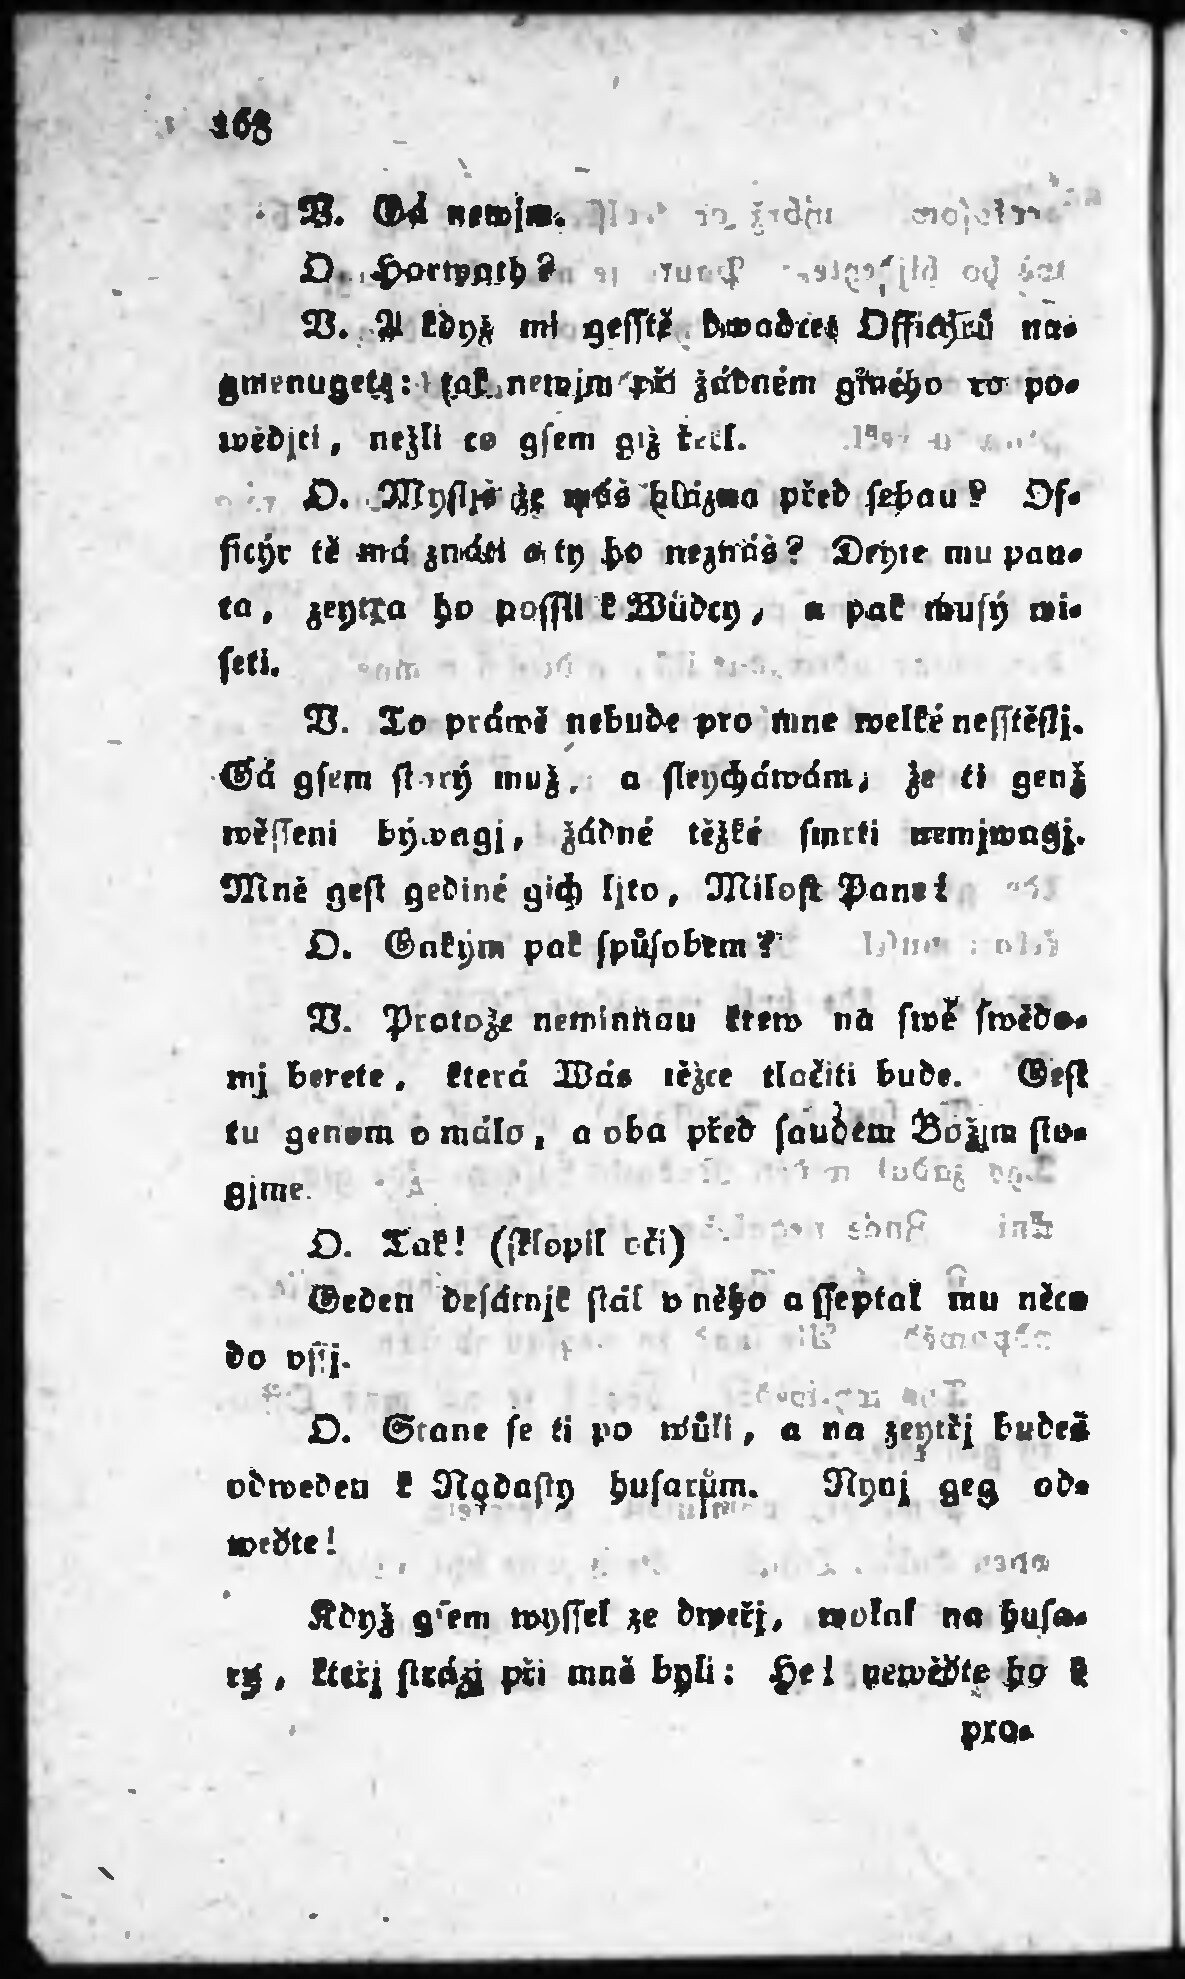 168
V. Gá newjm.
O. Horwath?
V. A když mi gesstě dwadcet Officýrů na-
gmenugete: tak newjm při žádném giného co po-
wědjti, nežli co gsem giž řekl.
O. Myslјš že máš blázna před sebau? Of-
ficýr tě má znáti a ty ho neznáš? Deyte mu pau-
ta, zeytra ho possli k Wůdcy, a pak musý wi-
seti.
V. To práwě nebude pro mne welké nesstěstj.
Gá gsem starý muž, a sleycháwám, že ti genž
wěsseni býwagj, žádné těžké smrti nemjwagj.
Mně gest gediné gich ljto, Milost Pane!
O. Gakým pak spůsobem?
V. Protože neminnau krew na swě swědo-
mj berete, která Wás těžce tlačiti bude. Gest
tu genom o málo, a oba před saudem Božjm sto-
gjme.
O. Tak! (sklopil oči)
Geden desátnjk stál v něho a sseptal mu něco
do vssj.
O. Stane se ti po wůli, a na zeytřj budeš
odweden k Nadasty husarům. Nynj geg od-
weďte!
Když gsem wyssel ze dweřj, wolal na husa-
ry, kteřj stráži při mně byli: He! neweďte ho k
pro-